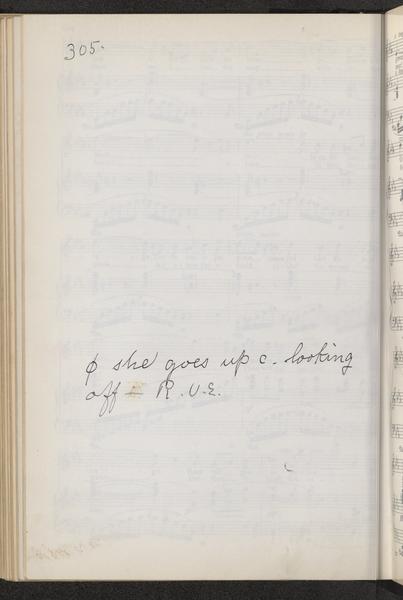 305.
ϕ she goes up c. looking
off = R.U.E.